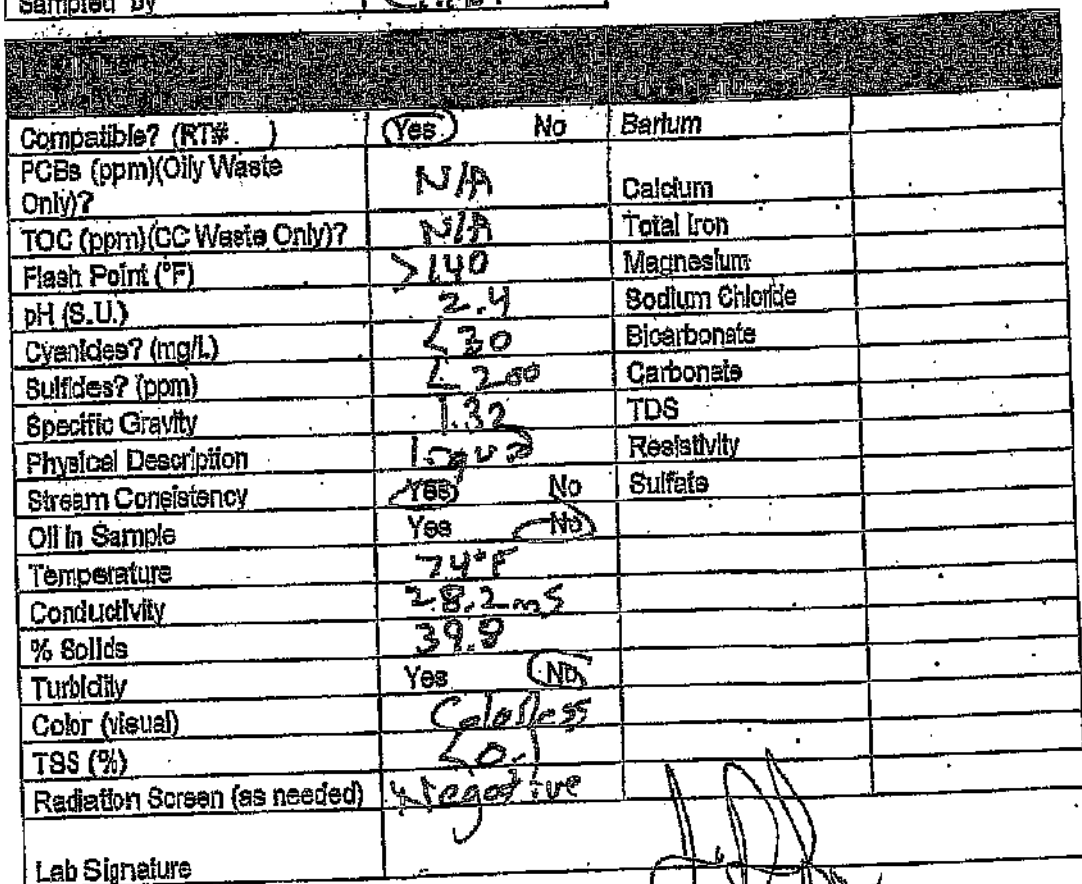 Sampled By
Compatible? (RT# ) Yes No Barium
PCBs (ppm)(Oily Waste Only)? N/A Calcium
TOC (ppm)(CC Waste Only)? N/A Total Iron
Flash Point (°F) >140 Magnesium
pH (S.U.) 2.4 Sodium Chloride
Cyanides? (mg/L) <30 Bicarbonate
Sulfides? (ppm) <200 Carbonate
Specific Gravity 1.32 TDS
Physical Description Liquid Resistivity
Stream Consistency Yes No Sulfate
Oil in Sample Yes No
Temperature 74°F
Conductivity 28.2 mS
% Solids 39.8
Turbidity Yes No
Color (visual) Colorless
TSS (%) <0.1
Radiation Screen (as needed) Negative
Lab Signature